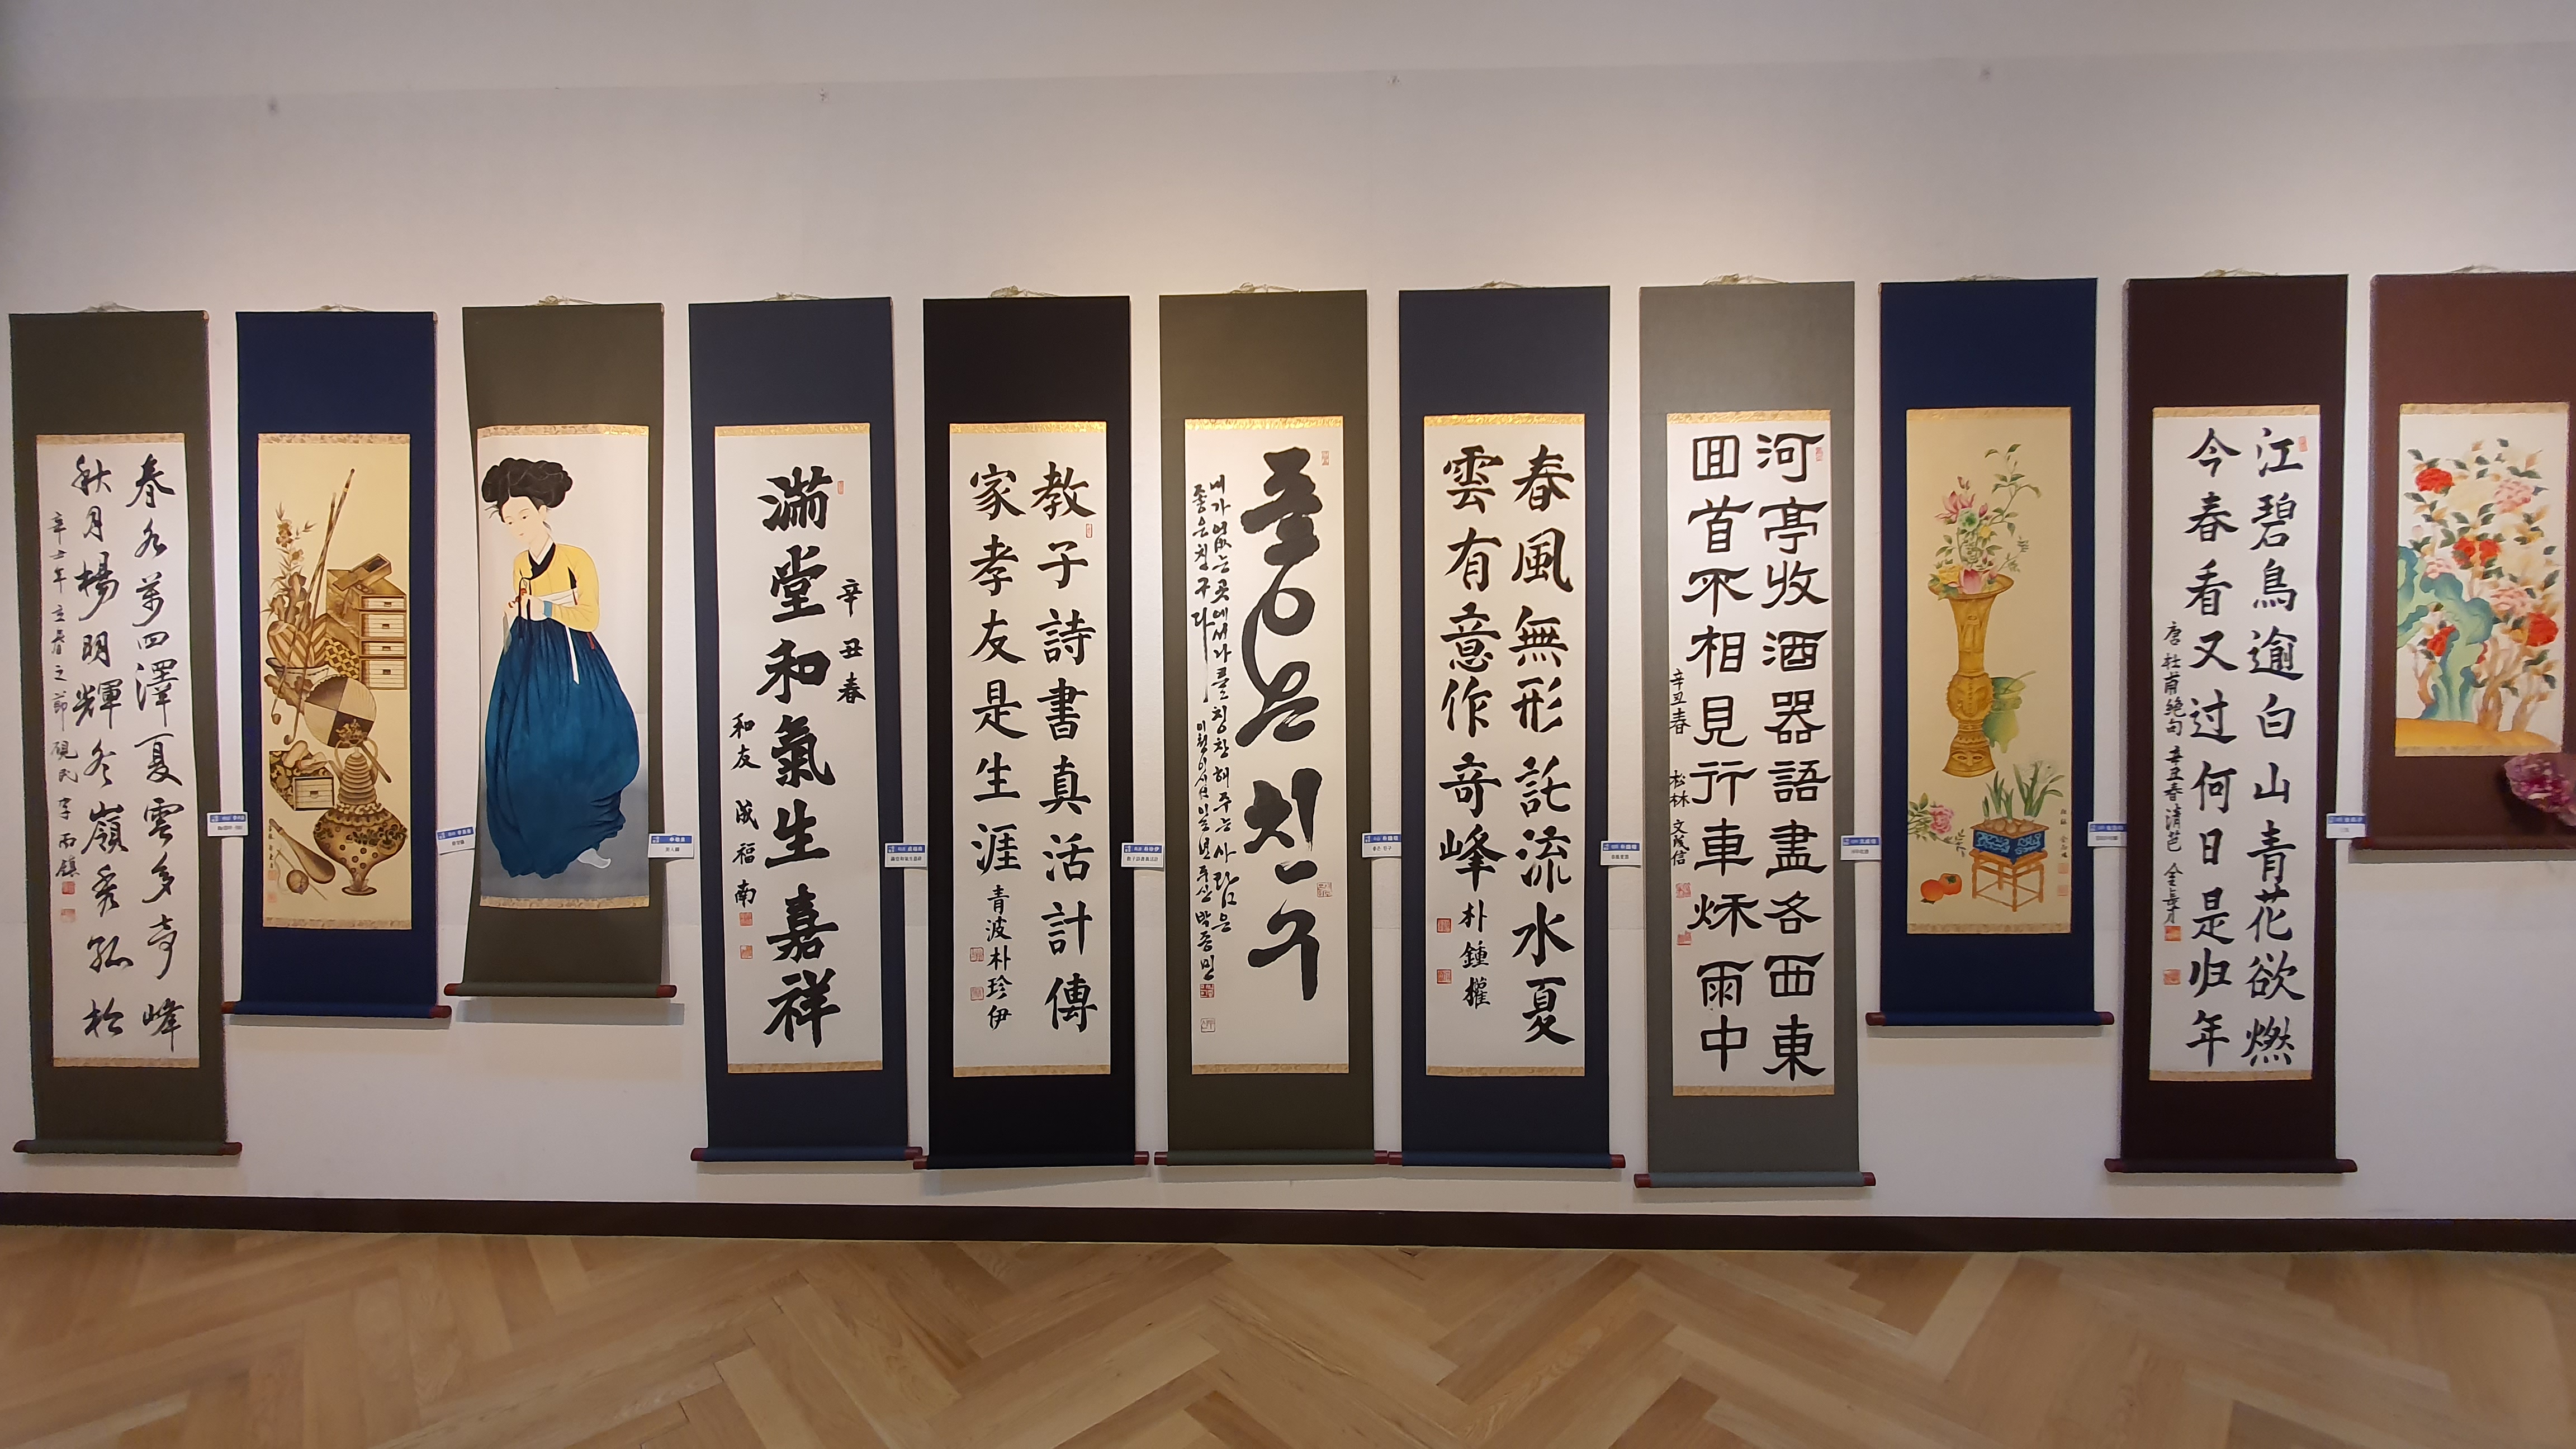 春水萬四澤夏雲多奇峰
秋月楊明輝冬嶺秀孤松
辛丑年立春之節硯民李丙鎭
滿堂和氣生嘉祥
辛丑春
和友
成福南
教子詩書真活計傳
家孝友是生涯
青波朴珍伊
좋은 친구
내가 없는 곳에서 나를 칭찬해 주는 사람은
좋은 친구다
春風無形託流水夏
雲有意作奇峰
朴鍾權
河亭收酒器語盡各西東
回首不相見行車秋雨中
辛丑春 松林 文成信
江碧鳥逾白山青花欲燃
今春看又过何日是归年
唐杜甫絶句 辛丑春